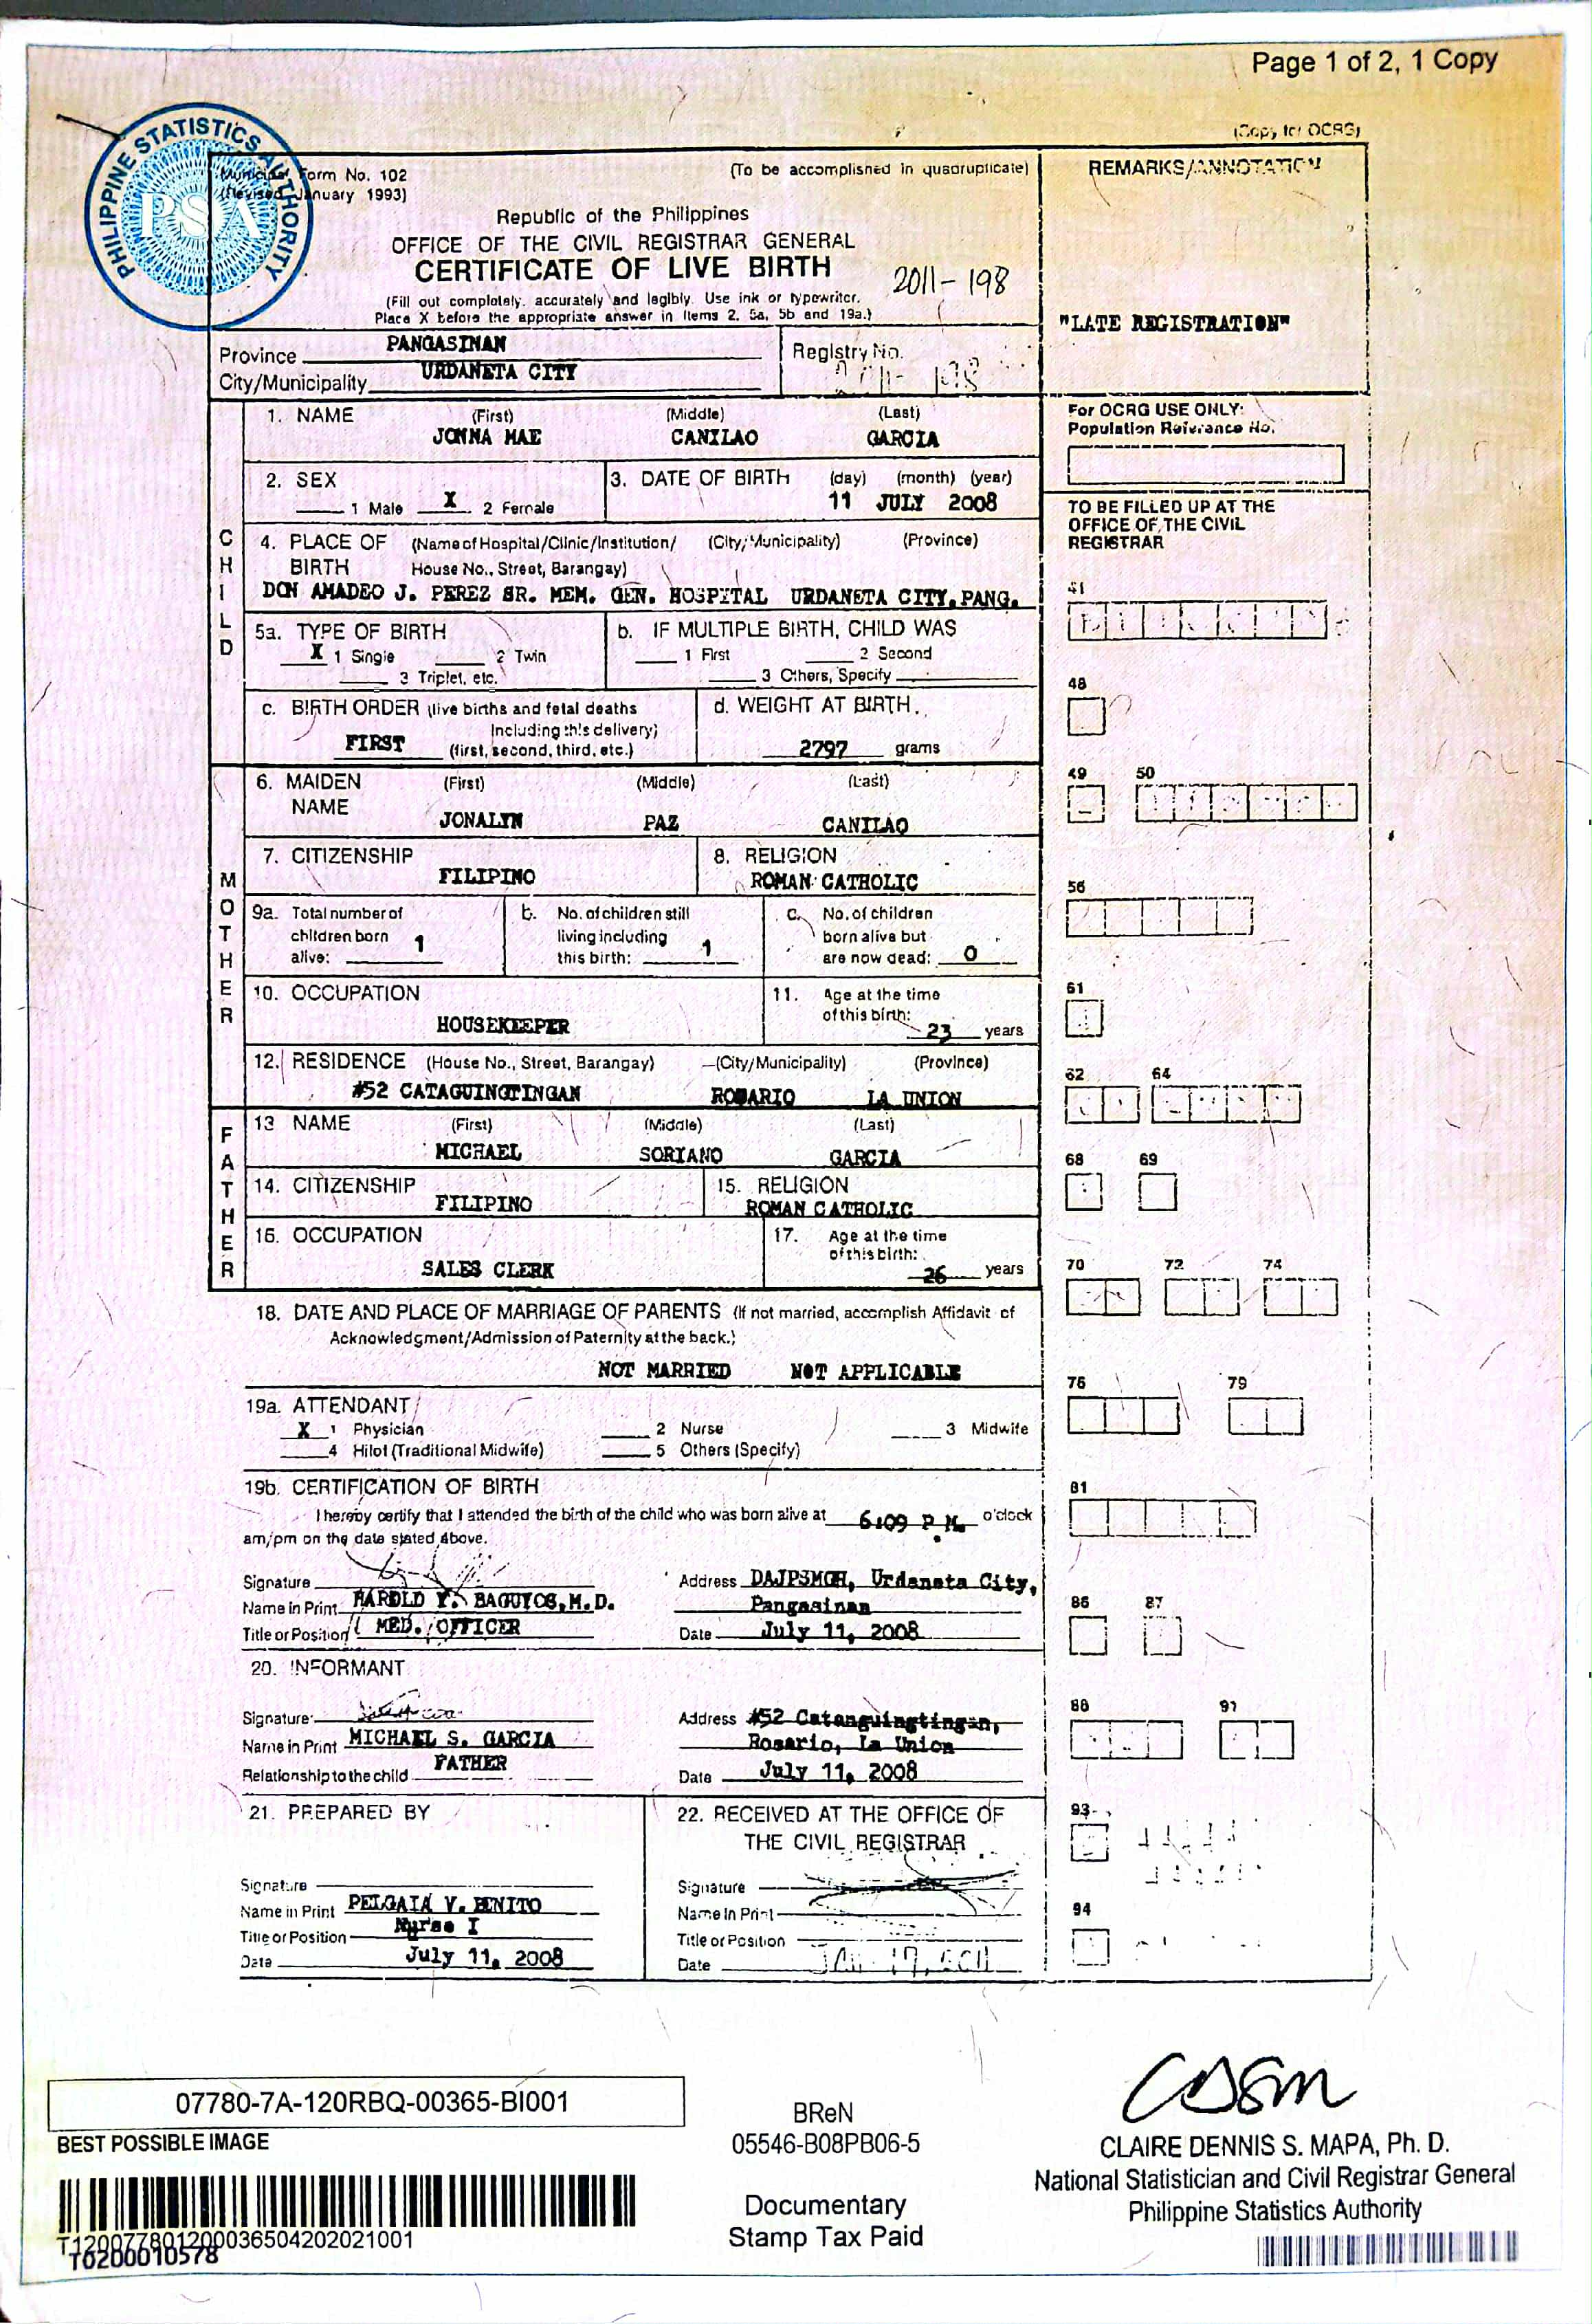 Page 1 of 2, 1 Copy
(Copy for OCRG)
PHILIPPINE STATISTICS AUTHORITY
PSA
Municipal Form No. 102
(To be accomplished in quadruplicate)
(Revised January 1993)
REMARKS/ANNOTATION
Republic of the Philippines
OFFICE OF THE CIVIL REGISTRAR GENERAL
CERTIFICATE OF LIVE BIRTH
2011-198
(Fill out completely, accurately and legibly. Use ink or typewriter.
Place X before the appropriate answer in Items 2, 5a, 5b and 19a.)
"LATE REGISTRATION"
Province PANGASINAN
Registry No.
City/Municipality URDANETA CITY
2011-198
CHILD
1. NAME (First) (Middle) (Last)
JONNA MAE CANILAO GARCIA
For OCRG USE ONLY:
Population Reference No.
2. SEX
1 Male X 2 Female
3. DATE OF BIRTH (day) (month) (year)
11 JULY 2008
TO BE FILLED UP AT THE
OFFICE OF THE CIVIL
REGISTRAR
4. PLACE OF BIRTH (Name of Hospital/Clinic/Institution/ (City/Municipality) (Province)
House No., Street, Barangay)
DON AMADEO J. PEREZ SR. MEM. GEN. HOSPITAL URDANETA CITY, PANG.
41
5a. TYPE OF BIRTH
X 1 Single 2 Twin
3 Triplet, etc.
b. IF MULTIPLE BIRTH, CHILD WAS
1 First 2 Second
3 Others, Specify
48
c. BIRTH ORDER (live births and fetal deaths
including this delivery)
FIRST (first, second, third, etc.)
d. WEIGHT AT BIRTH
2797 grams
MOTHER
6. MAIDEN NAME (First) (Middle) (Last)
JONALYN PAZ CANILAO
49 50
7. CITIZENSHIP
FILIPINO
8. RELIGION
ROMAN CATHOLIC
56
9a. Total number of
children born
alive: 1
b. No. of children still
living including
this birth: 1
c. No. of children
born alive but
are now dead: 0
10. OCCUPATION
HOUSEKEEPER
11. Age at the time
of this birth:
23 years
61
12. RESIDENCE (House No., Street, Barangay) (City/Municipality) (Province)
#52 CATAGUINGTINGAN ROSARIO LA UNION
62 64
FATHER
13 NAME (First) (Middle) (Last)
MICHAEL SORIANO GARCIA
68 69
14. CITIZENSHIP
FILIPINO
15. RELIGION
ROMAN CATHOLIC
16. OCCUPATION
SALES CLERK
17. Age at the time
of this birth:
26 years
70 72 74
18. DATE AND PLACE OF MARRIAGE OF PARENTS (If not married, accomplish Affidavit of
Acknowledgment/Admission of Paternity at the back.)
NOT MARRIED NOT APPLICABLE
76 79
19a. ATTENDANT
X 1 Physician 2 Nurse 3 Midwife
4 Hilot (Traditional Midwife) 5 Others (Specify)
19b. CERTIFICATION OF BIRTH
81
I hereby certify that I attended the birth of the child who was born alive at 6:09 P.M. o'clock
am/pm on the date stated above.
Signature
Name in Print HAROLD Y. BAGUYOS, M.D.
Title or Position MED. OFFICER
Address DAJPSMGH, Urdaneta City,
Pangasinan
Date July 11, 2008
86 87
20. INFORMANT
Signature
Name in Print MICHAEL S. GARCIA
Relationship to the child FATHER
Address #52 Catanguingtingan,
Rosario, La Union
Date July 11, 2008
88 91
21. PREPARED BY
Signature
Name in Print PELGAIA V. BENITO
Title or Position Nurse I
Date July 11, 2008
22. RECEIVED AT THE OFFICE OF
THE CIVIL REGISTRAR
Signature
Name in Print
Title or Position
Date JAN 17, 2011
93
94
07780-7A-120RBQ-00365-BI001
BEST POSSIBLE IMAGE
T120077801200036504202021001
T0200010578
BReN
05546-B08PB06-5
Documentary
Stamp Tax Paid
CLAIRE DENNIS S. MAPA, Ph. D.
National Statistician and Civil Registrar General
Philippine Statistics Authority